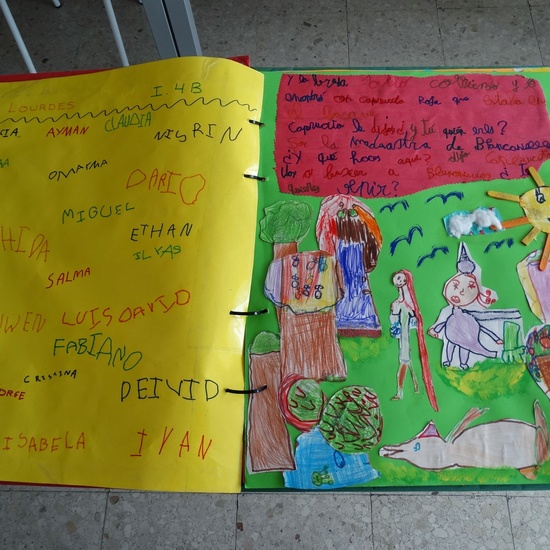 LOURDES I.4B
AYMAN CLAUDIA NISRIN
OMAYMA
DARIO
MIGUEL
ETHAN
ILYAS
SALMA
LUIS DAVID
FABIANO
CRISTINA
DEIVID
ISABELA IVAN
Y la bruja salio corriendo y se
encontro con caperucita Roja que estaba en
Caperucita le dijo y tú quién eres?
Soy la madrastra de Blancanieves
¿Y que haces aquí? dijo Caperucita
a buscar a Blancanieves ¿
quieres venir?